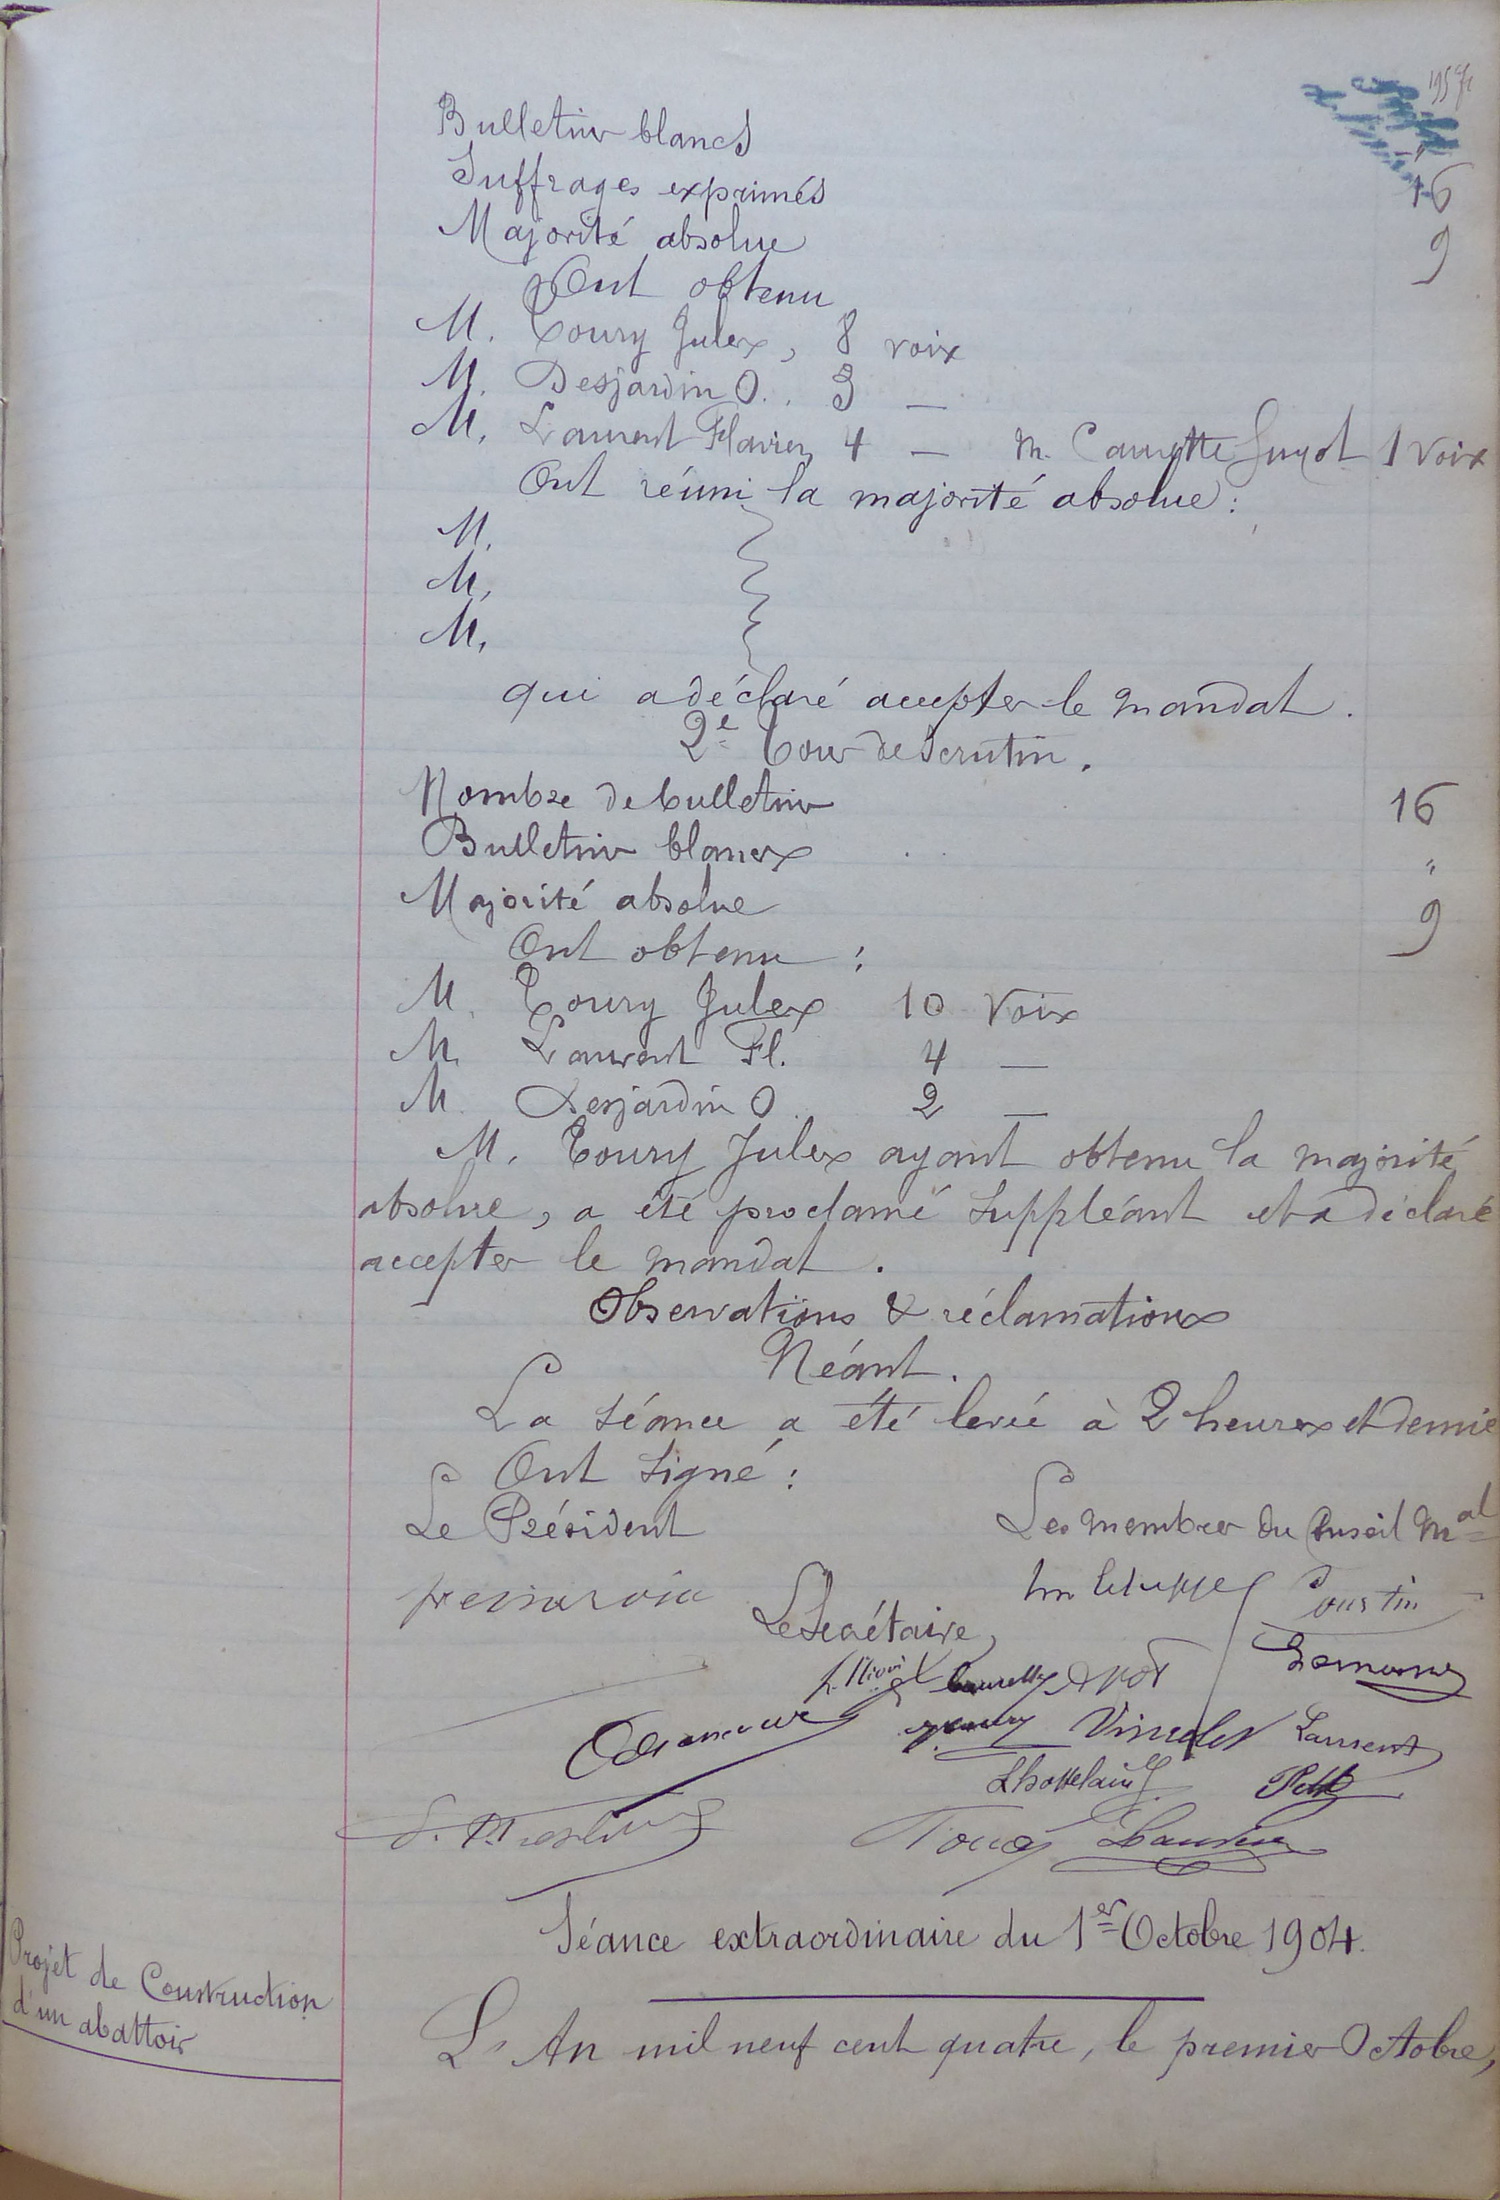 Bulletins blancs "
Suffrages exprimés 16
Majorité absolue 9
Ont obtenu
M. Toury Jules, 8 voix
M. Desjardin O.. 3 —
M. Laurent Flavien 4 — M. Caurette Guyot 1 Voix
Ont réuni la majorité absolue :
M.
M.
M.
qui a déclaré accepter le mandat.
2e Tour de Scrutin.
Nombre de bulletins 16
Bulletins blancs "
Majorité absolue 9
Ont obtenu :
M. Toury Jules 10 Voix
M. Laurent Fl. 4 —
M. Desjardin O. 2 —
M. Toury Jules ayant obtenu la majorité
absolue, a été proclamé suppléant et a déclaré
accepter le mandat.
Observations & réclamations
Néant.
La séance a été levée à 2 heures et demie
Ont signé :
Le Président
Les membres du Conseil Mal
Le Secrétaire,
Laurent
Petit
Séance extraordinaire du 1er Octobre 1904.
Projet de Construction
d'un abattoir
L'An mil neuf cent quatre, le premier Octobre,